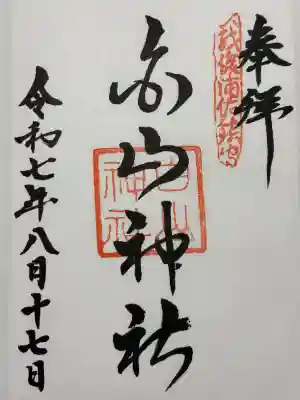 奉拝
白山神社
白山
神社
令和七年八月十七日